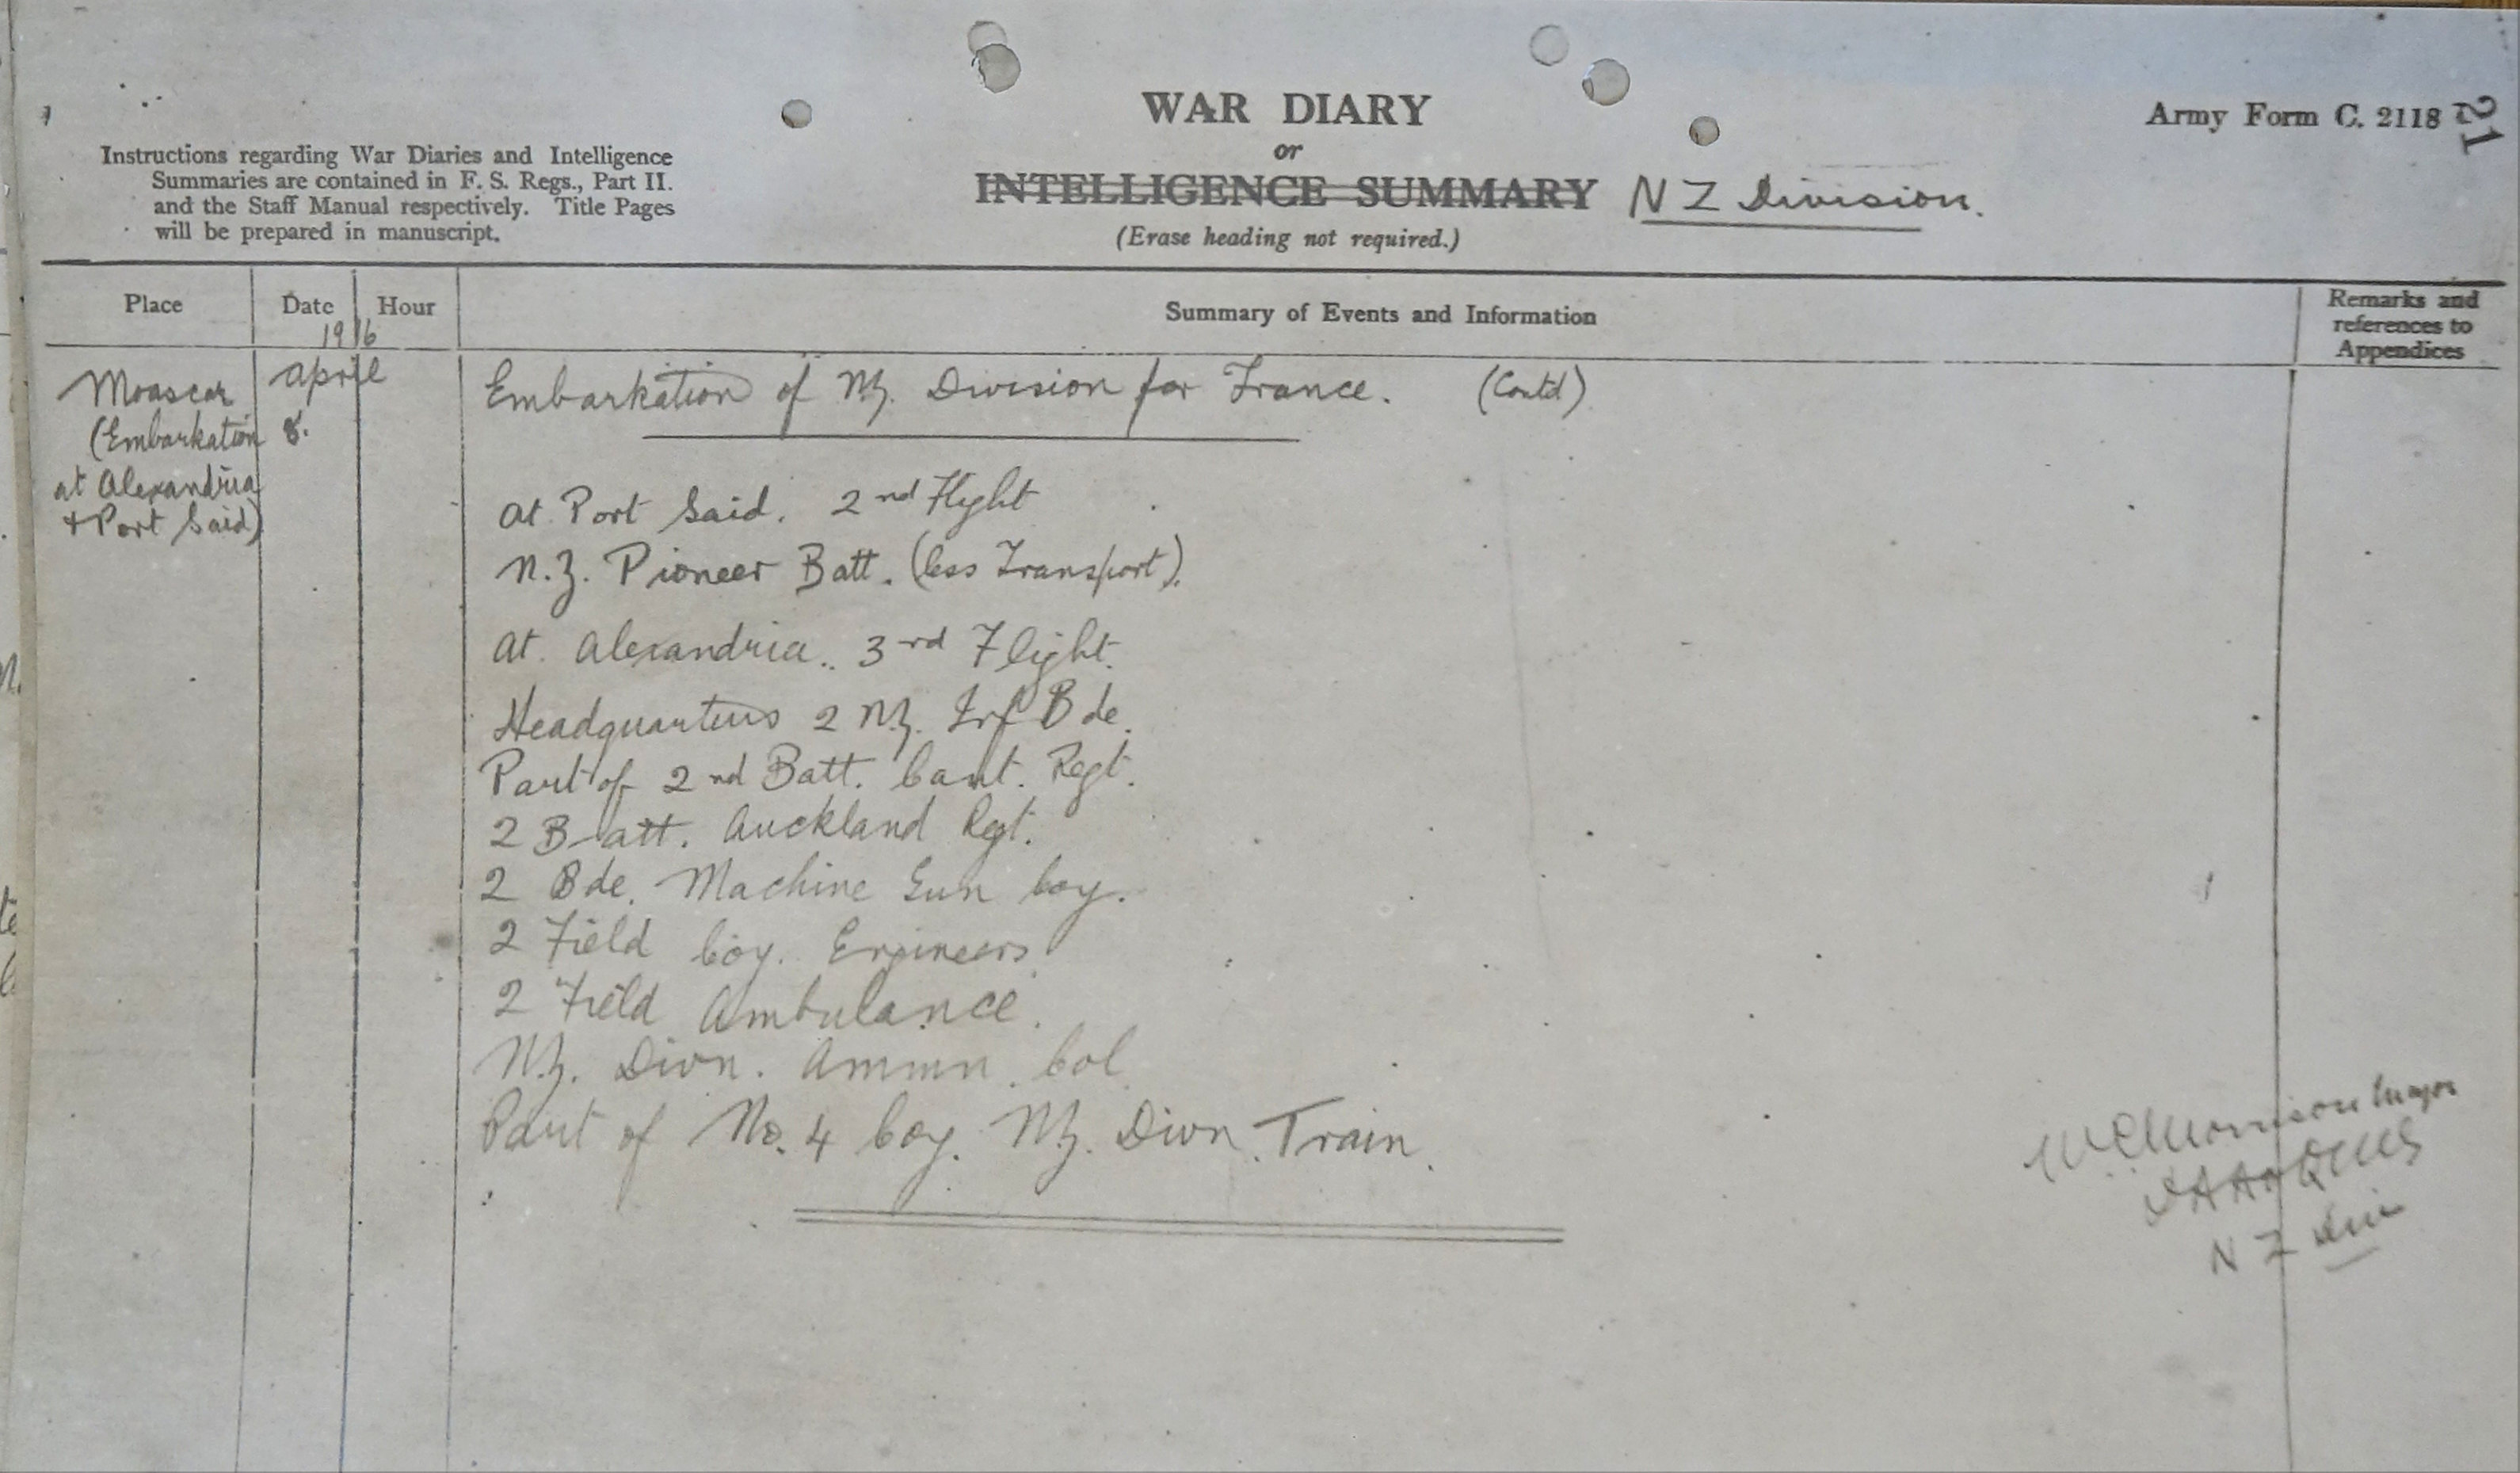 WAR DIARY
or
INTELLIGENCE SUMMARY N Z Division.
(Erase heading not required.)
Army Form C. 2118
21
Instructions regarding War Diaries and Intelligence
Summaries are contained in F. S. Regs., Part II.
and the Staff Manual respectively. Title Pages
will be prepared in manuscript.
Place Date Hour Summary of Events and Information Remarks and
references to
Appendices
1916
Moascar
(Embarkation
at Alexandria
+ Port Said)
April
8.
Embarkation of N.Z. Division for France. (Contd)
At Port Said. 2nd Flight
N.Z. Pioneer Batt. (less Transport).
At Alexandria.. 3rd Flight.
Headquarters 2 N.Z. Inf Bde.
Part of 2nd Batt. Cant. Regt.
2 Batt. Auckland Regt.
2 Bde. Machine Gun Coy.
2 Field Coy. Engineers.
2 Field Ambulance.
N.Z. Divn. Ammn. Col.
Part of No. 4 Coy. N.Z. Divn. Train.
Morrison Major
DAA+QMG
N Z Div